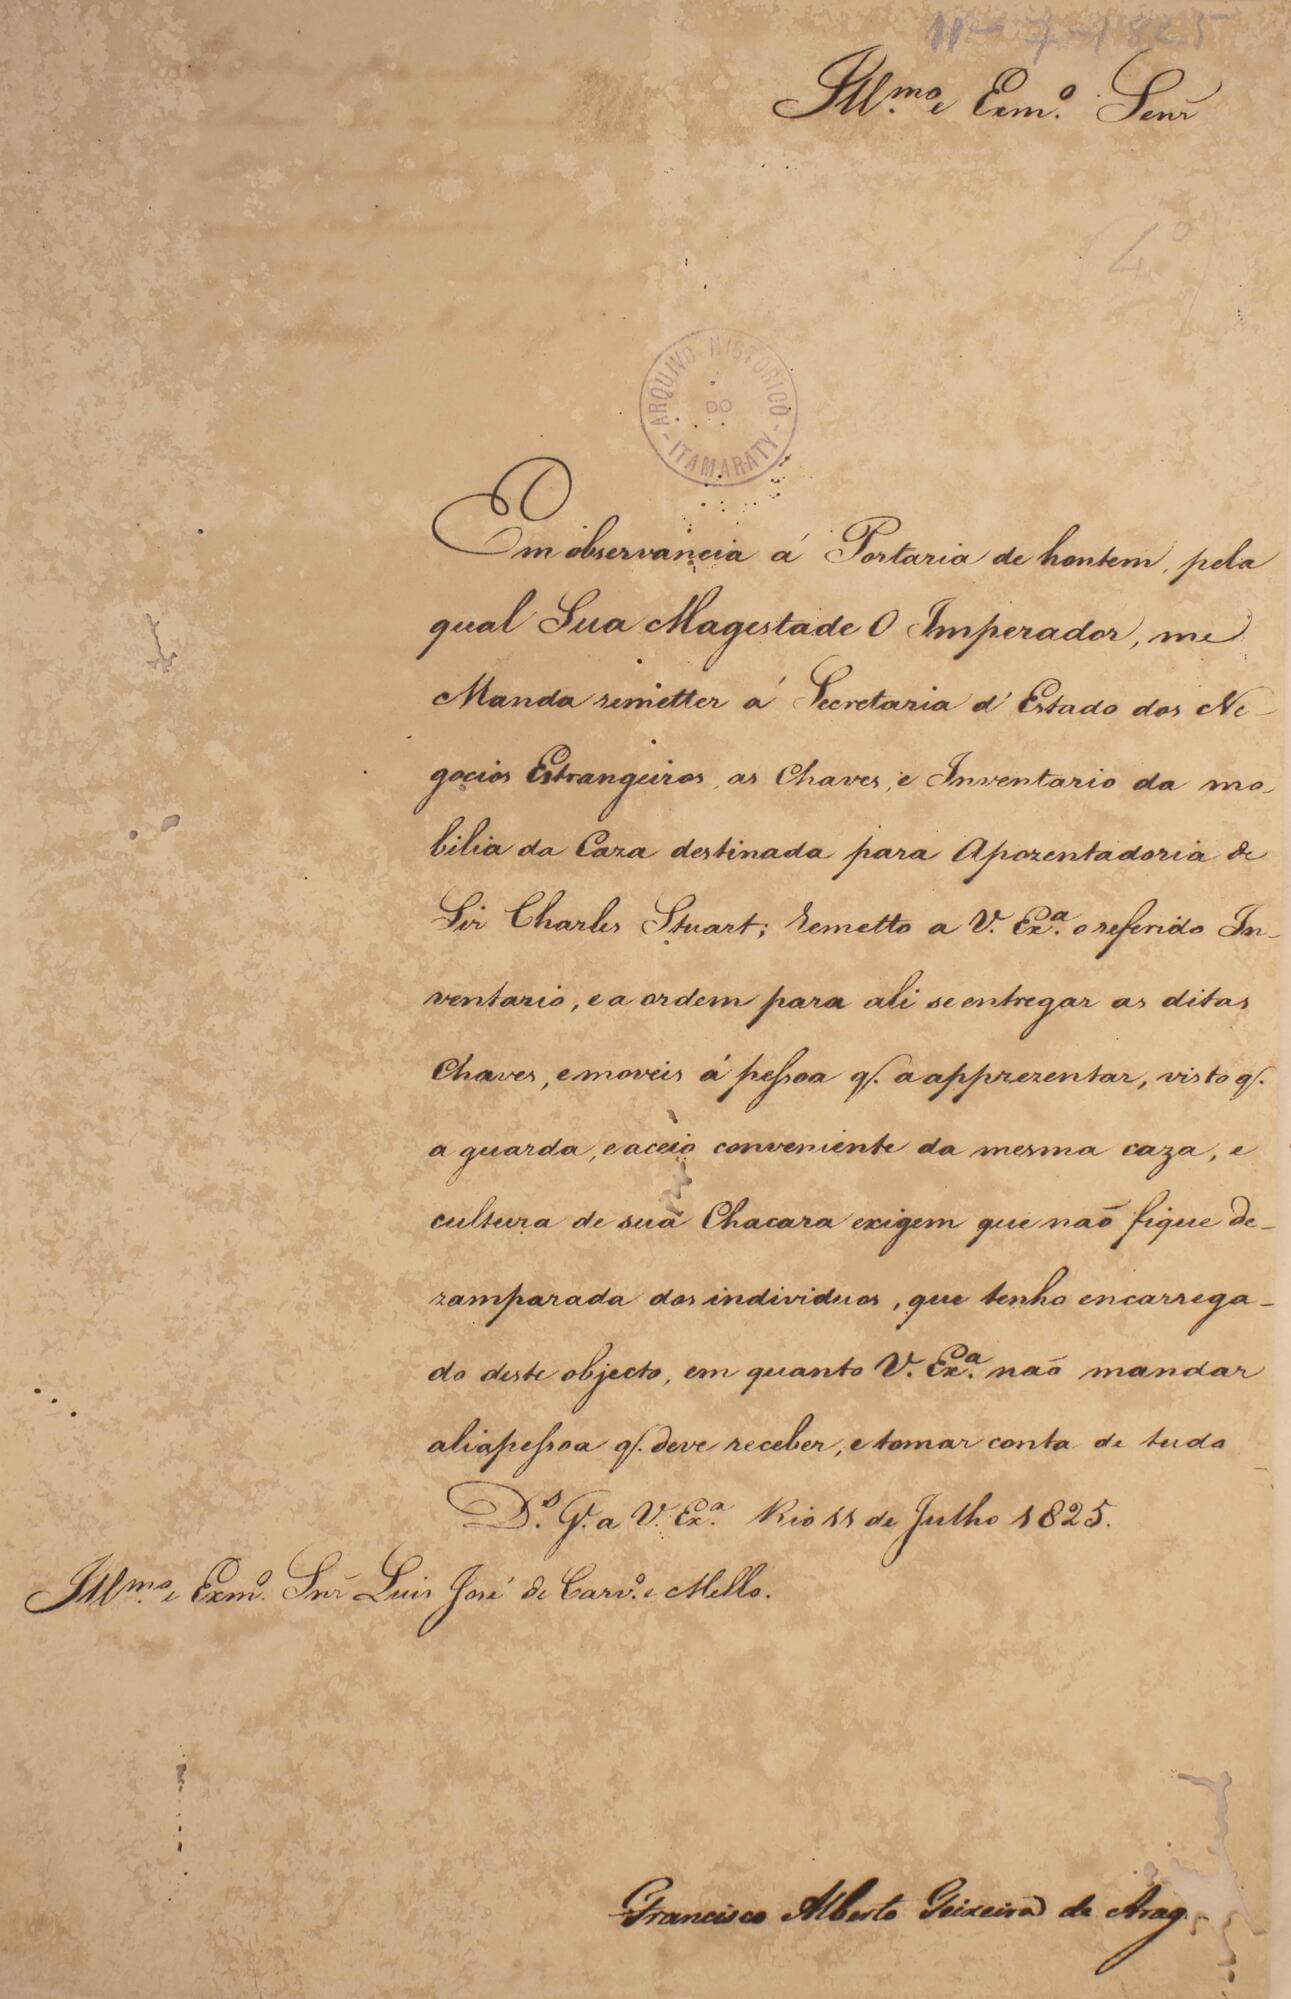 11-7-1825
Illmo. e Exmo. Senr
(4º)
ARQUIVO HISTORICO
DO
- ITAMARATY -
Em observancia á Portaria de hontem, pela
qual Sua Magestade O Imperador, me
Manda remetter á Secretaria d'Estado dos Ne-
gocios Estrangeiros, as Chaves, e Inventario da mo-
bilia da Caza destinada para Apozentadoria de
Sir Charles Stuart; remetto a V. Exa. o referido In-
ventario, e a ordem para ali se entregar as ditas
Chaves, e moveis á pessoa q. a apprezentar, visto q.
a guarda, e aceio conveniente da mesma caza, e
cultura de sua Chacara exigem que não fique de-
zamparada dos individuos, que tenho encarrega-
do deste objecto, em quanto V. Exa. não mandar
ali a pessoa q. deve receber, e tomar conta de tudo
Ds. G. a V. Exa. Rio 11 de Julho 1825.
Illmo. e Exmo. Snr Luis José de Carvo. e Mello.
Francisco Alberto Teixeira de Arag